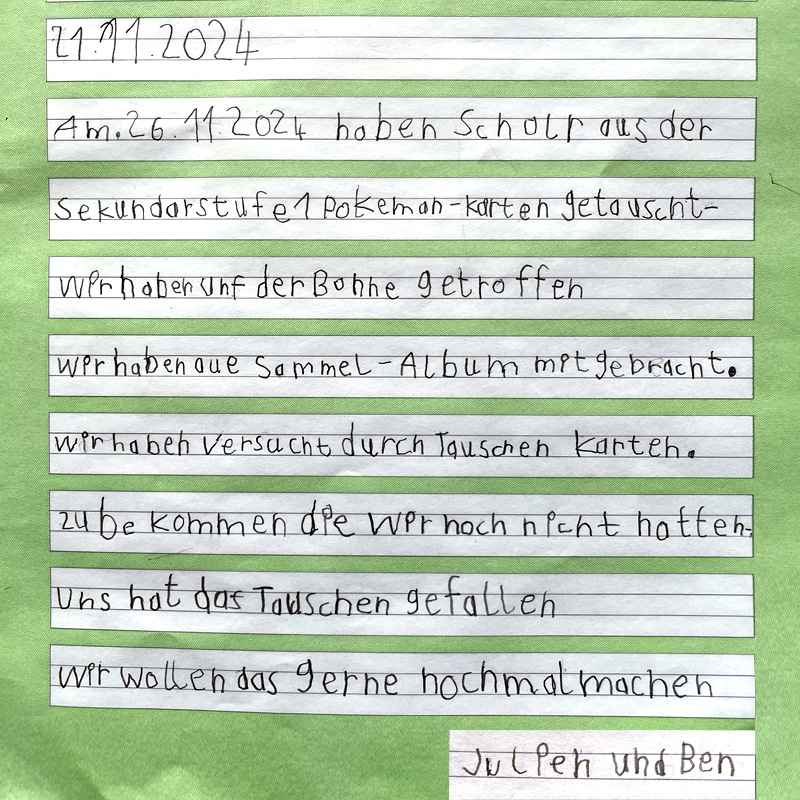 21.11.2024
Am.26.11.2024 haben Scholr aus der
Sekundarstufe 1 Pokeman-karten getauscht-
wir haben unf der Bohne getroffen
wir haben aue Sammel-Album mitgebracht.
wir haben versucht durch Tauschen karten.
zu be kommen die wir noch nicht hatten.
uns hat das Tauschen gefallen
wir wollen das gerne nochmal machen
Julien und Ben